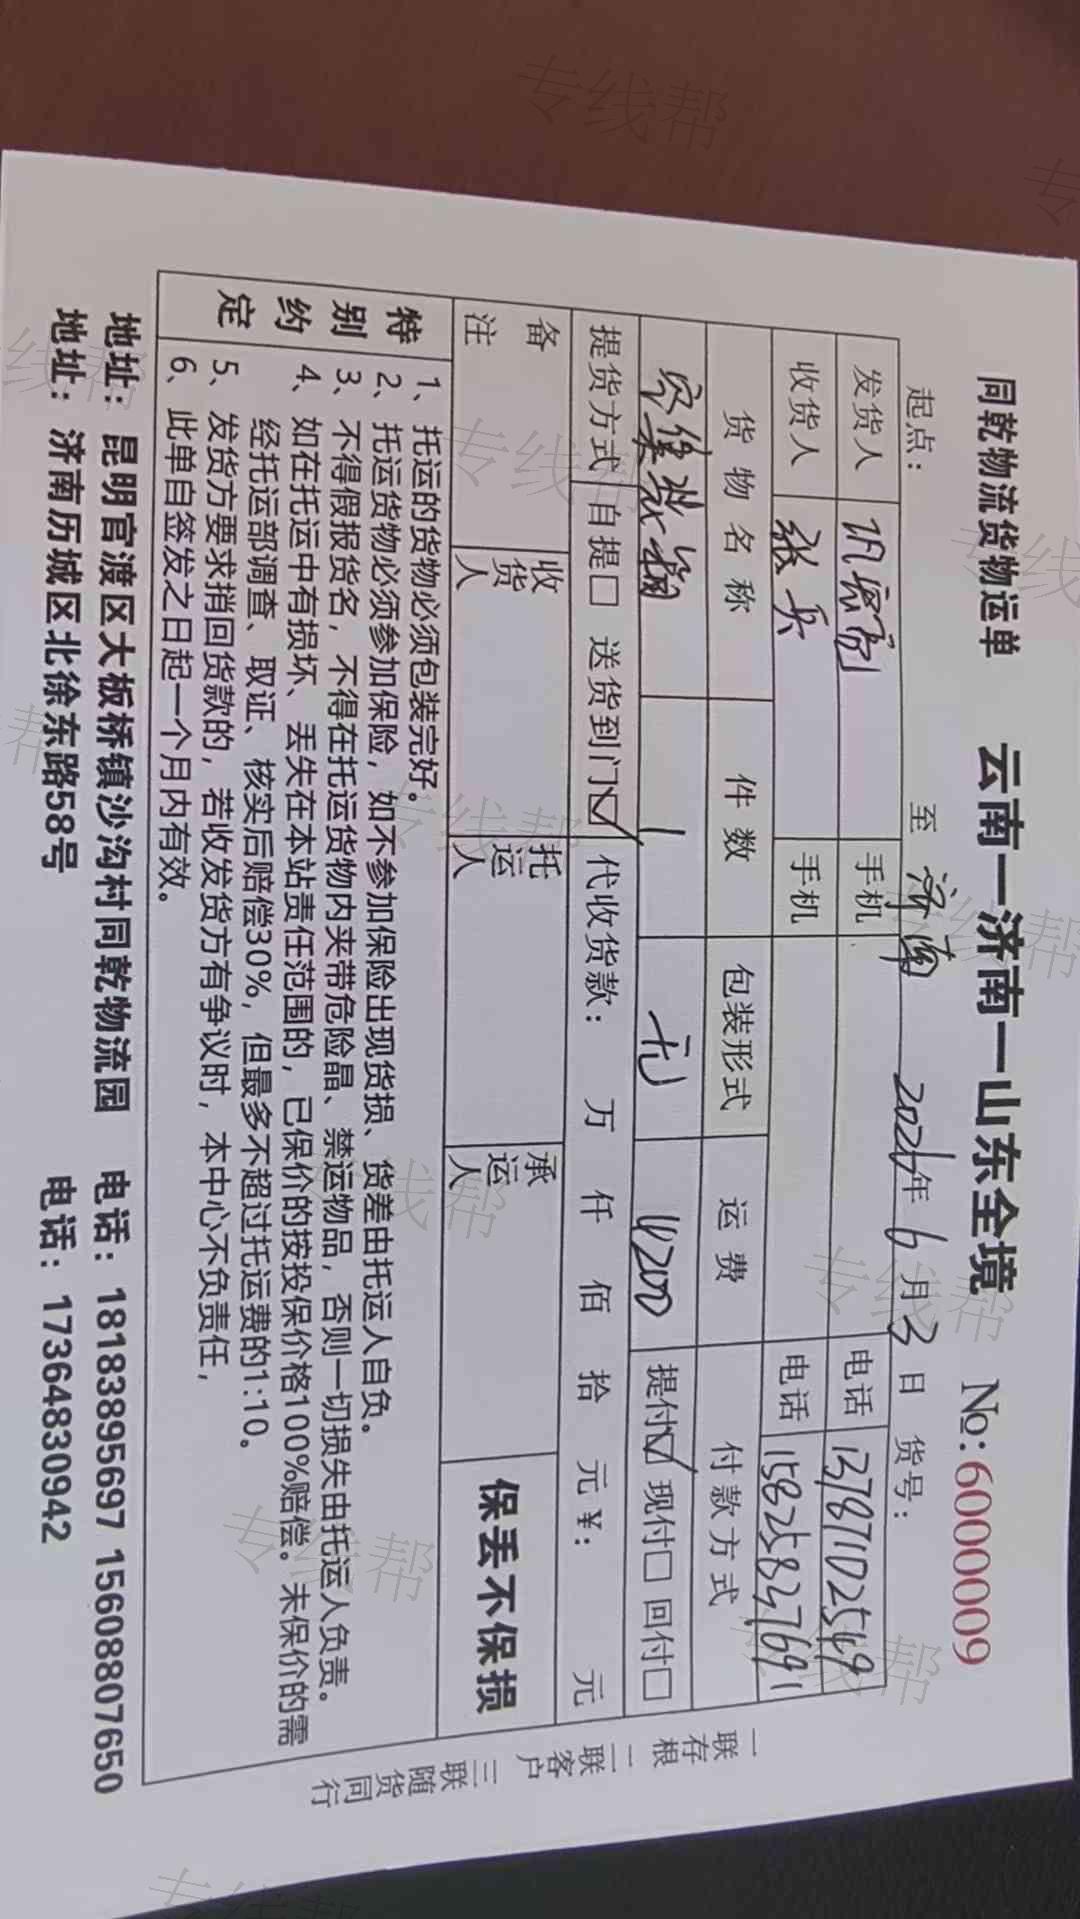 同乾物流货物运单 云南一济南一山东全境 No:6000009
起点： 至 济南 2026年6月3日 货号：
发货人 手机 电话 13787102549
收货人 张兵 手机 电话 15825837691
货物名称 件数 包装形式 运费 付款方式
1 无 4200 提付☑ 现付□ 回付□
提货方式 自提□ 送货到门☑ 代收货款： 万 仟 佰 拾 元￥： 元
备注 收货人 托运人 承运人 保丢不保损
特别约定
1、托运的货物必须包装完好。
2、托运货物必须参加保险，如不参加保险出现货损、货差由托运人自负。
3、不得假报货名，不得在托运货物内夹带危险晶、禁运物品，否则一切损失由托运人负责。
4、如在托运中有损坏、丢失在本站责任范围的，已保价的按投保价格100%赔偿。未保价的需
经托运部调查、取证、核实后赔偿30%，但最多不超过托运费的1:10。
5、发货方要求捎回货款的，若收发货方有争议时，本中心不负责任，
6、此单自签发之日起一个月内有效。
地址：昆明官渡区大板桥镇沙沟村同乾物流园 电话：18183895697 15608807650
地址：济南历城区北徐东路58号 电话：17364830942
一联存根 二联客户 三联随货同行
专线帮